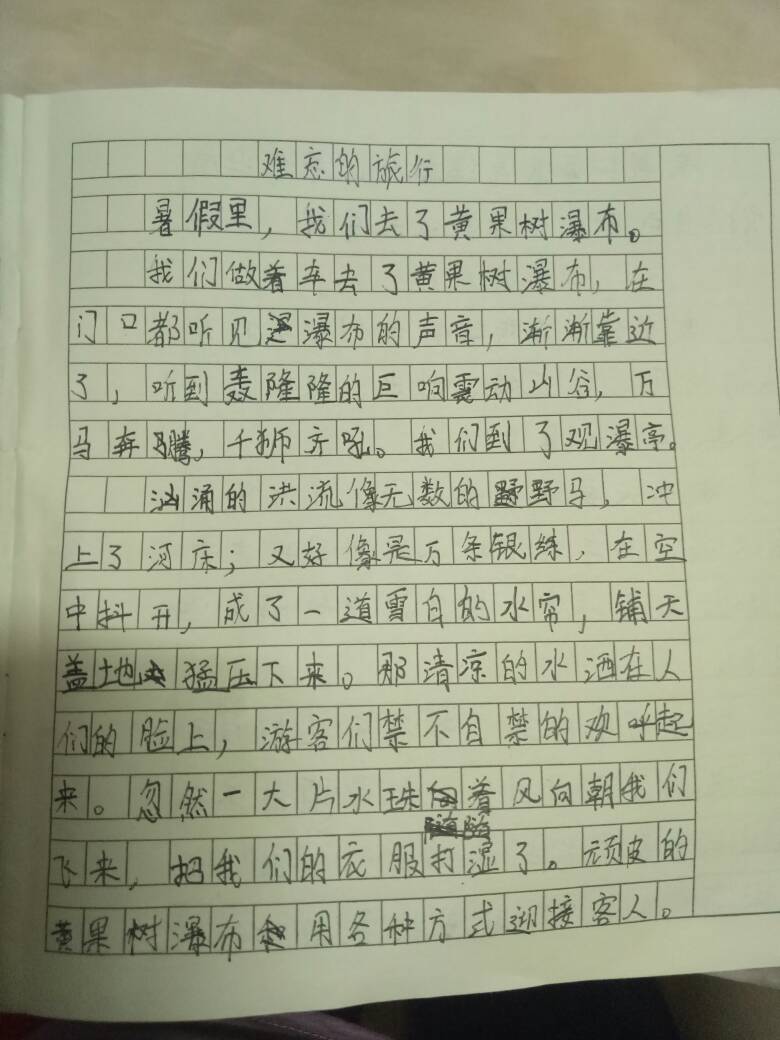 难忘的旅行
暑假里，我们去了黄果树瀑布。
我们做着车去了黄果树瀑布，在
门口都听见瀑布的声音，渐渐靠近
了，听到轰隆隆的巨响震动山谷，万
马奔腾，千狮齐吼。我们到了观瀑亭。
汹涌的洪流像无数的野马，冲
上了河床；又好像是万条银练，在空
中抖开，成了一道雪白的水帘，铺天
盖地猛压下来。那清凉的水洒在人
们的脸上，游客们禁不自禁的欢呼起
来。忽然一大片水珠随着风向朝我们
飞来，把我们的衣服打湿了。顽皮的
黄果树瀑布用各种方式迎接客人。